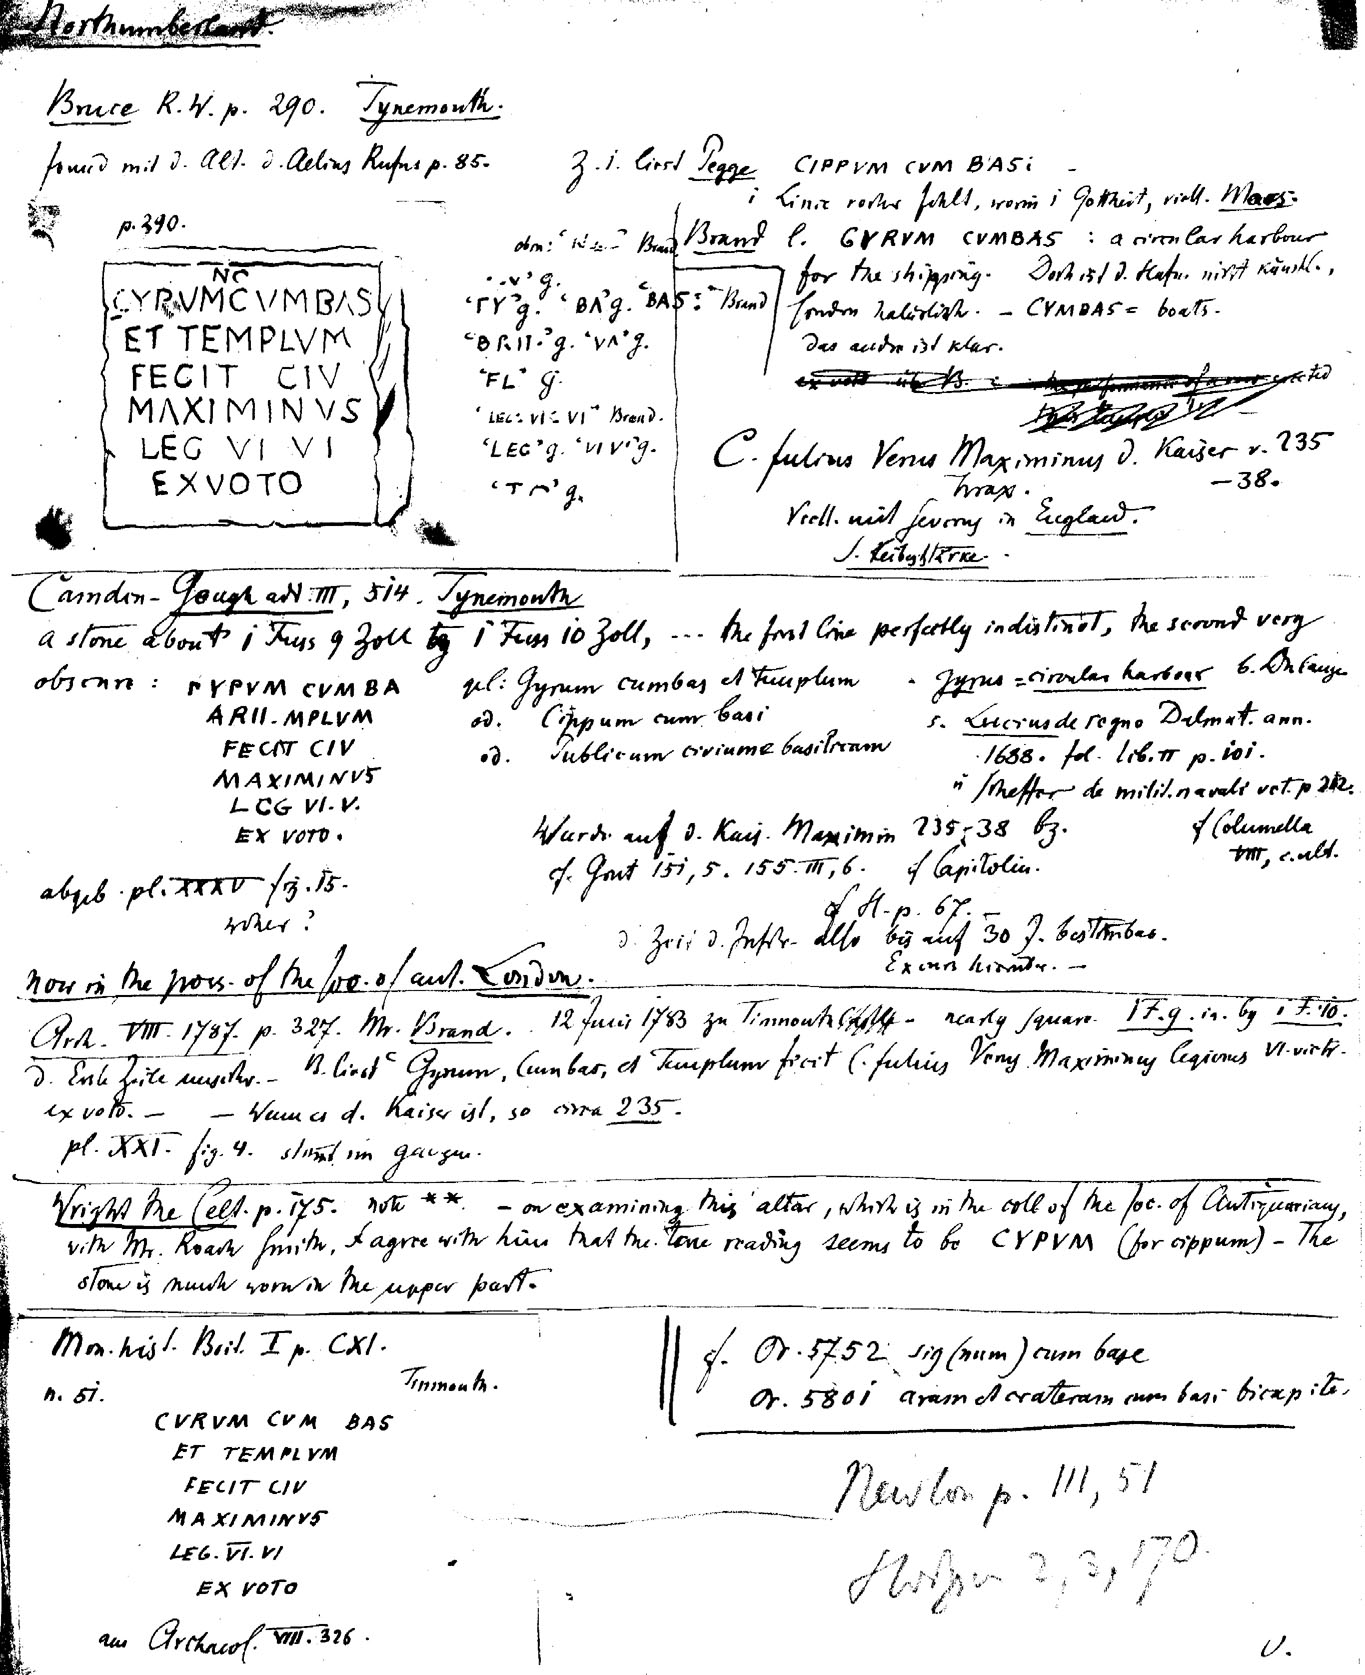 Northumberland.
Bruce R.W. p. 290. Tynemouth.
found mit d. Alt. d. Aelius Rufus p. 85.
p. 290.
NC
GYRVMCVMBAS
ET TEMPLVM
FECIT CIV
MAXIMINVS
LEG VI VI
EXVOTO
Brand
"V" g.
"ΓY" g. "BA" g. "BAS:" Brand
"BRII·" g. "VA" g.
"FL" g.
"LEG: VI: VI" Brand.
"LEG" g. "VIV" g.
g.
Z. 1. liest Pegge CIPPVM CVM BASi
i Linie vorher fehlt, worin i Gottheit, viell. Mars.
Brand l. GYRVM CVMBAS : a circular harbour
for the shipping. Doch ist d. Hafn. nicht künstl.,
sondern natürlich. – CYMBAS = boats.
das andre ist klar.
C. Julius Verus Maximinus d. Kaiser v. 235
Thrax. –38.
Viell. mit Severus in England.
s. Leibesstärke.
Camden-Gough add. III, 514. Tynemouth
a stone about 1 Fuss 9 Zoll by 1 Fuss 10 Zoll, --- the first line perfectly indistinct, the second very
obscure : ΓYPVM CVMBA
ARII. MPLVM
FECIT CIV
MAXIMINVS
LCG VI. V.
EX VOTO.
gl: Gyrum cumbas et Templum
od. Cippum cum basi
od. Publicum civium e basilicam
gyrus = circular harbour b. DuCange
s. Lucius de regno Dalmat. ann.
1688. fol. lib. II p. 101.
u Scheffer de milit. navali vet. p 212.
Wurde auf d. Kais. Maximin 235-38 bz.
cf Columella
VIII, c. ult.
cf. Grut 151, 5. 155. III, 6. cf Capitolin.
abgeb. pl. XXXV fig. 15.
woher?
cf H. p. 67.
d. Zeit d. Inschr. also bis auf 30 J. bestimbar.
Excurs hierüber. –
now in the poss. of the soc. of ant. London.
Arch. VIII. 1787. p. 327. Mr. Brand. 12 Juni 1783 zu Tinmouth – nearly square 1 F. 9. in. by 1 F. 10.
d. Erste Zeile unsicher. – B. liest Gyrum, Cumbas, et Templum fecit C. Julius Verus Maximinus legionis VI. victr.
ex voto. – – Wenn es d. Kaiser ist, so circa 235.
pl. XXI. fig. 4. stimt im ganzen.
Wright the Celt. p. 175. note **. – on examining this altar, which is in the coll of the Soc. of Antiquaries,
with Mr. Roach Smith, I agree with him that the true reading seems to be CYPVM (for cippum) – The
stone is much worn in the upper part.
Mon. hist. Brit. I p. CXI.
n. 51. Tinmouth.
CVRVM CVM BAS
ET TEMPLVM
FECIT CIV
MAXIMINVS
LEG. VI. VI
EX VOTO
aus Archaeol. VIII. 326.
cf. Or. 5752 sig(num) cum base
Or. 5801 aram et crateram cum basi bicapite.
Newton p. 111, 51
2, 3, 170.
V.